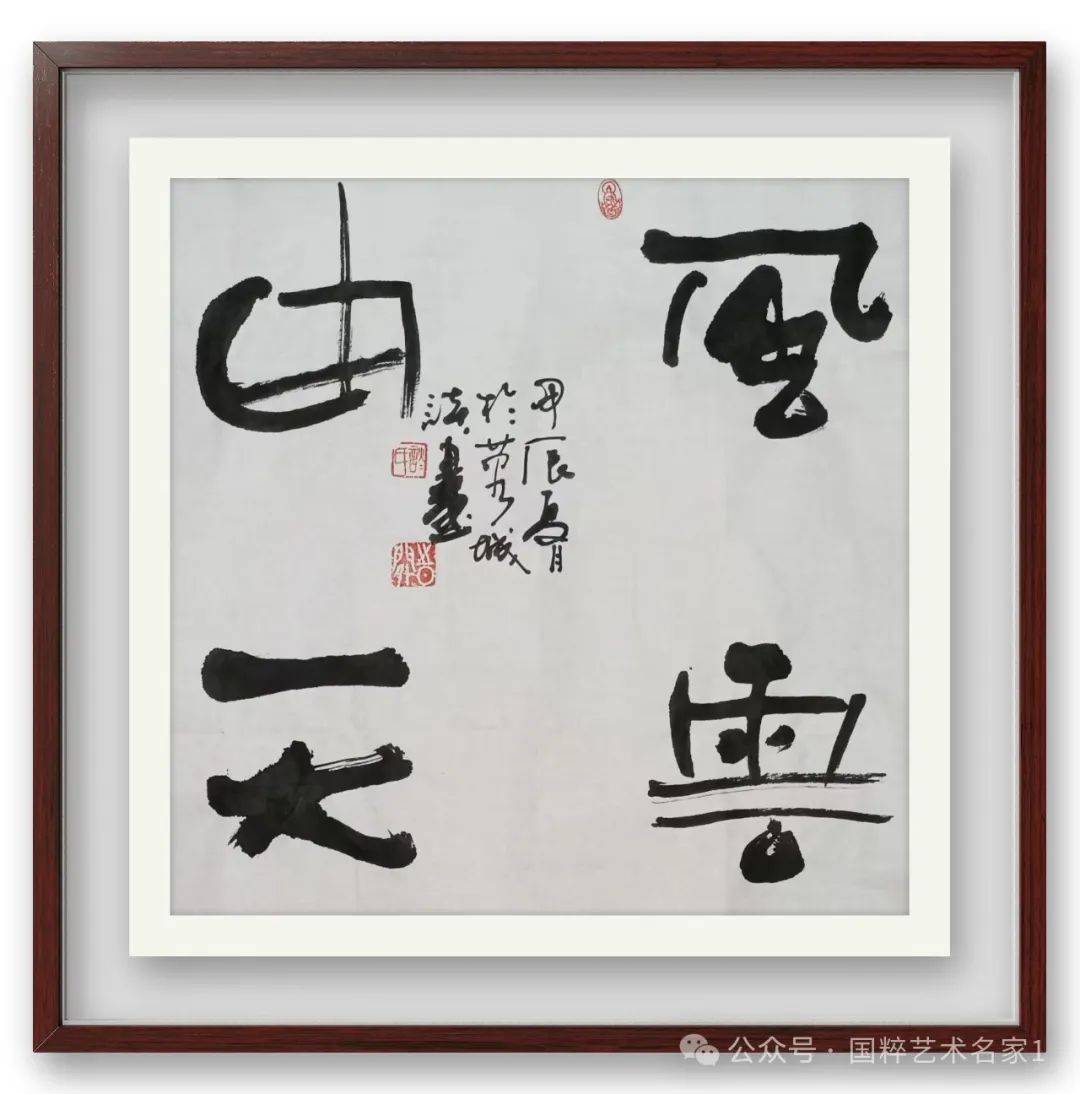 風雲
由天
甲辰夏月
於蓉城
公众号 · 国粹艺术名家1